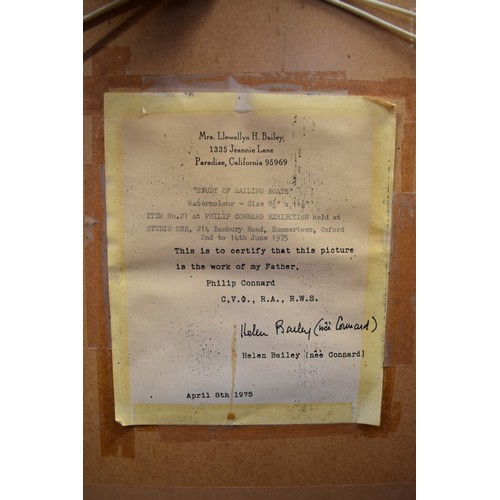 Mrs. Llewellyn H. Bailey,
1335 Jeannie Lane
Paradise, California 95969
"STUDY OF SAILING BOATS"
Watercolour - Size 8½" x
ITEM No.21 at PHILIP CONNARD EXHIBITION held at
STUDIO ONE, 214 Banbury Road, Summertown, Oxford
2nd to 14th June 1975
This is to certify that this picture
is the work of my Father,
Philip Connard
C.V.O., R.A., R.W.S.
Helen Bailey (née Connard)
Helen Bailey (nëe Connard)
April 8th 1975